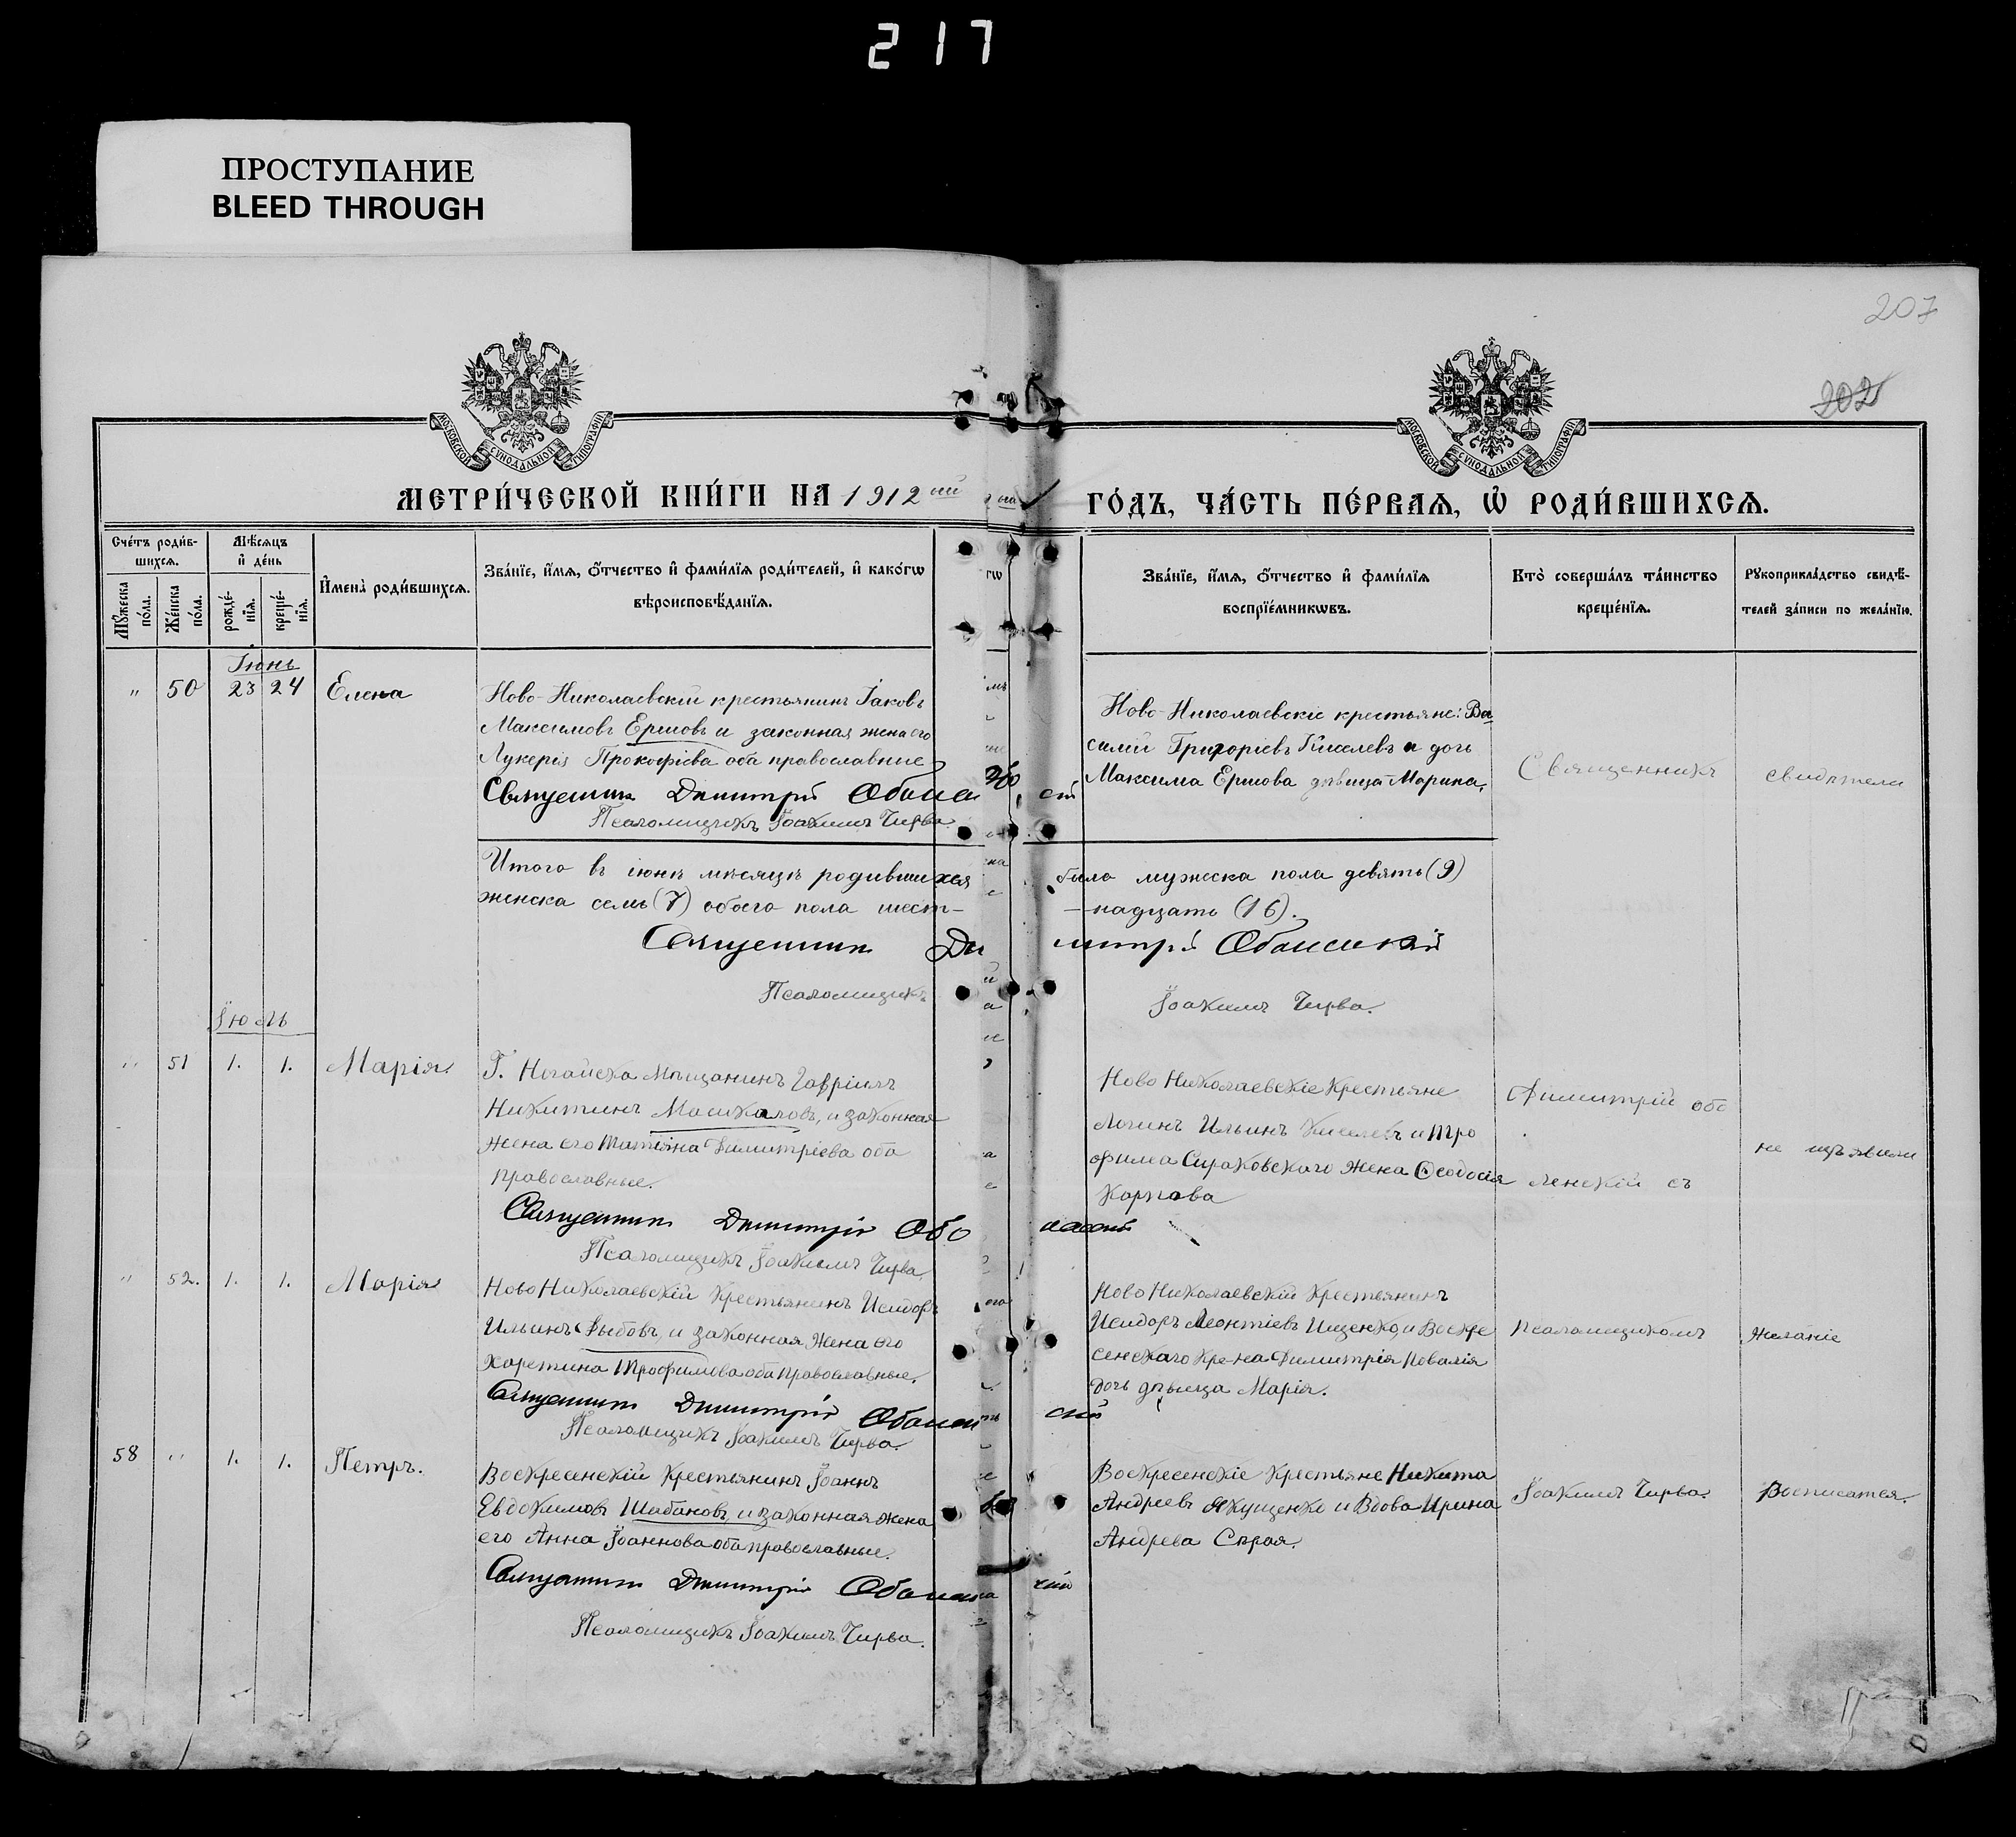 217
ПРОСТУПАНИЕ
BLEED THROUGH
207
202
МОСКОВСКОЙ СѴНОДАЛЬНОЙ ТИПОГРАФІИ
МОСКОВСКОЙ СѴНОДАЛЬНОЙ ТИПОГРАФІИ
МЕТРИ́ЧЕСКОЙ КНИ́ГИ НА 1912 ый
ГО́ДЪ, ЧА́СТЬ ПЕ́РВАЯ, Ѡ҆ РОДИ́ВШИХСЯ.
Счéтъ роди́в-
шихся.
Мѣ́сяцъ
и҆ де́нь
Мꙋ́жеска по́ла.
Же́нска по́ла.
рожде́-нїя.
креще́-нїя.
И҆мена̀ роди́вшихся.
Зва́нїе, и҆́мя, ѻ҆́тчество и҆ фами́лїя роди́телей, и҆ како́гѡ
вѣроисповѣ́данїя.
Зва́нїе, и҆́мя, ѻ҆́тчество и҆ фами́лїя
воспрїе́мникѡвъ.
Кто̀ соверша́лъ та́инство
креще́нїя.
Рꙋкоприкла́дство свидѣ́-
телей за́писи по жела́нїю.
Іюнь
" 50 23 24 Елена
Ново-Николаевскій крестьянинъ Іаковъ
Максимовъ Ершовъ и законная жена его
Лукерія Прокофіева оба православные
Священник Димитрій Обо
Псаломщикъ Іоакимъ Чирва.
Ново-Николаевскіе крестьяне: Ва
силій Григоріевъ Киселевъ и дочь
Максима Ершова дѣвица Марина.
Священникъ
свидѣтели
Итого въ іюнѣ мѣсяцѣ родившихся
женска семь (7) обоего пола шест-
было мужеска пола девять (9)
—надцать (16).
Священник Ди
митрій
Псаломщикъ
Іоакимъ Чирва.
Іюль
" 51 1. 1. Марія
Г. Ногайска Мѣщанинъ Гавріилъ
Никитинъ и законная
жена его Татіана Димитріева оба
православные.
Священник Димитрій Обо
Псаломщикъ Іоакимъ Чирва.
Ново Николаевскіе Крестьяне
Логинъ Ильинъ Киселевъ и Тро
фима Сираковскаго жена Ѳеодосія
Карпова
Димитрій обо
ленскій съ
не изъявили
" 52. 1. 1. Марія
Ново Николаевскій Крестьянинъ Исидоръ
Ильинъ и законная жена его
Харитина Трофимова оба православные.
Священник Димитрій
Псаломщикъ Іоакимъ Чирва.
Ново Николаевскій Крестьянинъ
Исидоръ Леонтіевъ Ищенко, и Воскре
сенскаго Кре-на Димитрія Ковалія
дочь дѣвица Марія.
псаломщикомъ
желаніе
58 " 1. 1. Петръ.
Воскресенскій Крестьянинъ Іоаннъ
Евдокимовъ Шабановъ, и законная жена
его Анна Іоаннова оба православные.
Священник Димитрій
Псаломщикъ Іоакимъ Чирва.
Воскресенскіе Крестьяне Никита
Андреевъ Якущенко и Вдова Ирина
Андрева Сѣрая.
Іоакимъ Чирва.